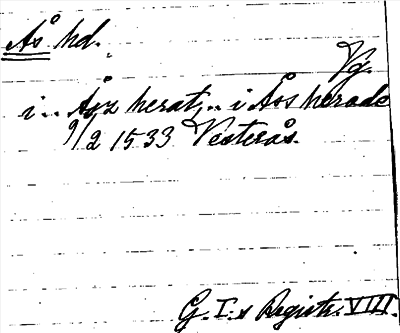 Ås hd.
Vg.
i .. Åsz herat, .. i Åss herade
9/2 1533 Vesterås.
G. I:s Registr. VIII.